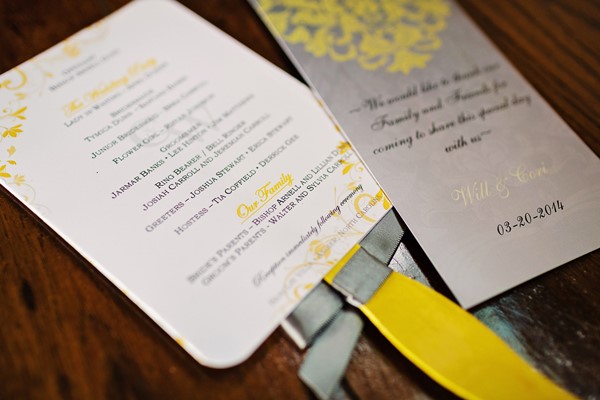 The Wedding Party
Lady in Waiting
Bridesmaids
Tymica Dunn
Junior Bridesmaid
Flower Girl
Groomsmen
Jarmar Banks • Lee Hinson
Ring Bearer / Bell Ringer
Josiah Carroll and Jeremiah Carroll
Greeters – Joshua Stewart • Erica Stewart
Hostess – Tia Coffield • Derrick Gee
Our Family
Bride's Parents – Bishop Arnell and Lillian
Groom's Parents – Walter and Sylvia
Reception immediately following ceremony
~We would like to thank our
Family and Friends for
coming to share this special day
with us~
Will & Cori
03-20-2014